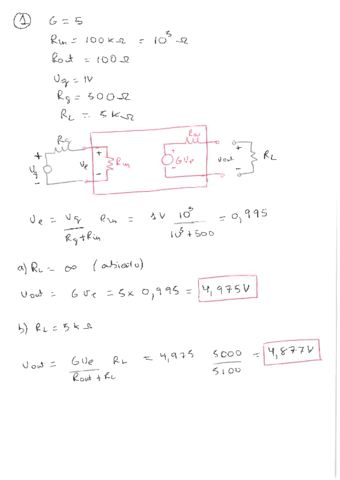 ① G = 5
Rin = 100 kΩ = 10⁵ Ω
Rout = 100 Ω
Ug = 1V
Rg = 500 Ω
RL = 5 kΩ
Rg Rout
+ Ug - Ue + - Rin + - GUe Vout + - RL
Ue = Ug / (Rg + Rin) Rin = 1V 10⁵ / (10⁵ + 500) = 0,995
a) RL = ∞ (abierto)
Vout = G Ue = 5 x 0,995 = 4,975V
b) RL = 5 kΩ
Vout = GUe / (Rout + RL) RL = 4,975 5000 / 5100 = 4,877V